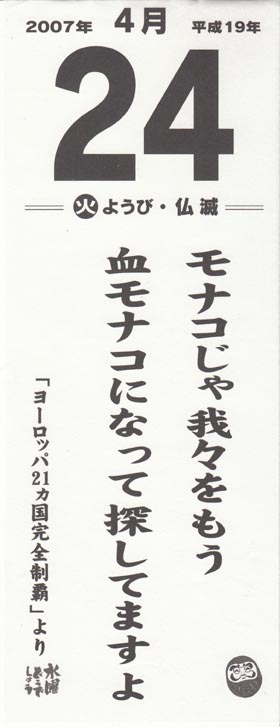 2007年 4月 平成19年
24
火 ようび・仏滅
モナコじゃ我々をもう
血モナコになって探してますよ
「ヨーロッパ21ヵ国完全制覇」より
水曜
どうで
しょう